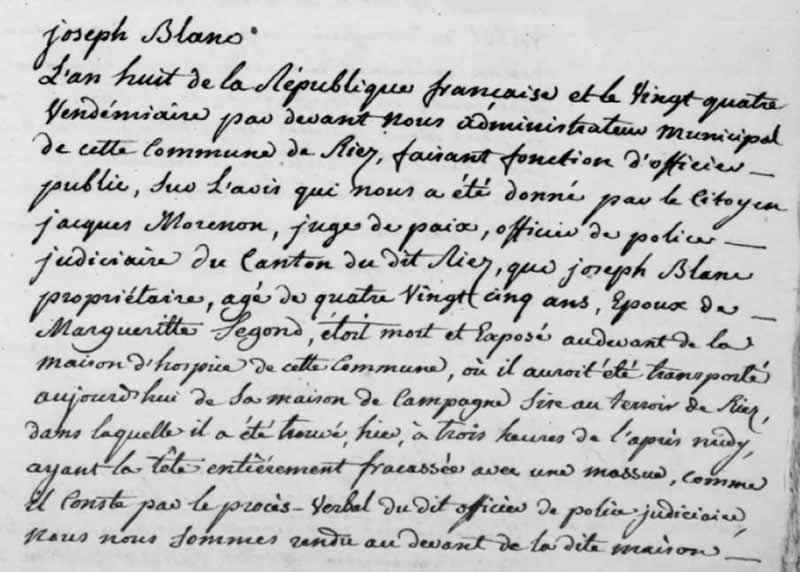 joseph Blanc
L'an huit de la République française et le Vingt quatre
Vendémiaire par devant nous administrateur municipal
de cette Commune de Riez, faisant fonction d'officier
public, sur L'avis qui nous a été donné par le Citoyen
jacques Morenon, juge de paix, officier de police
judiciaire du Canton du dit Riez, que joseph Blanc
propriétaire, agé de quatre Vingt cinq ans, Epoux de
Margueritte Segond, étoit mort et Exposé audevant de la
maison d'hospice de cette Commune, où il auroit été transporté
aujourd'hui de sa maison de Campagne sise au terroir de Riez,
dans laquelle il a été trouvé, hier, à trois heures de l'après midy,
ayant la tête entièrement fracassée avec une massue, comme
il Conste par le procès-Verbal du dit officier de police judiciaire,
nous nous sommes rendu au devant de la dite maison